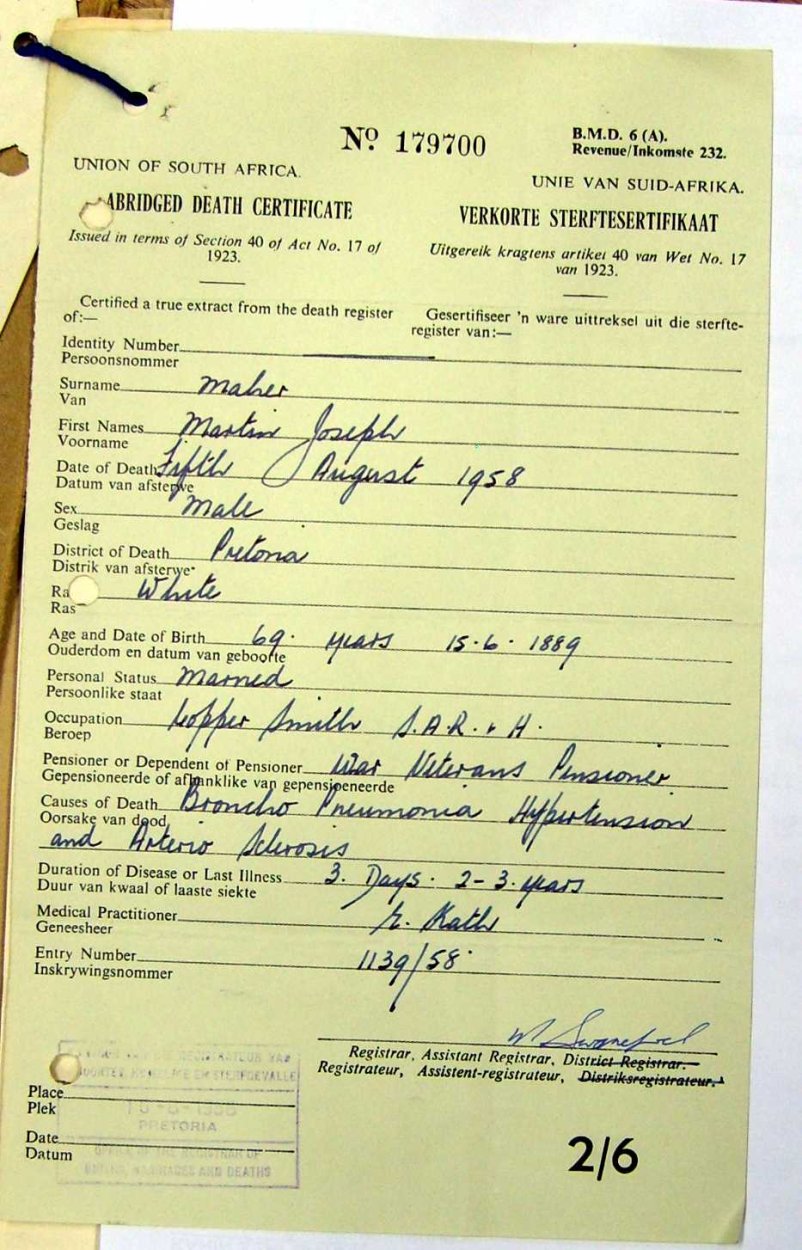 No. 179700
B.M.D. 6 (A).
Revenue/Inkomste 232.
UNION OF SOUTH AFRICA.
UNIE VAN SUID-AFRIKA.
ABRIDGED DEATH CERTIFICATE
VERKORTE STERFTESERTIFIKAAT
Issued in terms of Section 40 of Act No. 17 of
1923.
Uitgereik kragtens artikel 40 van Wet No. 17
van 1923.
Certified a true extract from the death register
of:—
Gesertifiseer 'n ware uittreksel uit die sterfte-
register van:—
Identity Number
Persoonsnommer
Surname Maher
Van
First Names Martin Joseph
Voorname
Date of Death Fifth August 1958
Datum van afsterwe
Sex Male
Geslag
District of Death Pretoria
Distrik van afsterwe
White
Ras
Age and Date of Birth 69. years 15.6.1889
Ouderdom en datum van geboorte
Personal Status Married
Persoonlike staat
Occupation Copper Smith S.A.R. & H.
Beroep
Pensioner or Dependent of Pensioner War Veterans Pensioner
Gepensioneerde of afhanklike van gepensioeneerde
Causes of Death Broncho Pneumonia Hypertension
Oorsake van dood
and Arterio Sclerosis
Duration of Disease or Last Illness 3. Days. 2-3. years
Duur van kwaal of laaste siekte
Medical Practitioner Kath
Geneesheer
Entry Number 1139/58
Inskrywingsnommer
Swanepoel
Registrar, Assistant Registrar, District Registrar.
Registrateur, Assistent-registrateur, Distriksregistrateur.
Place
Plek
PRETORIA
Date
Datum
OFFICE OF THE REGISTRAR OF
BIRTHS, MARRIAGES AND DEATHS
2/6